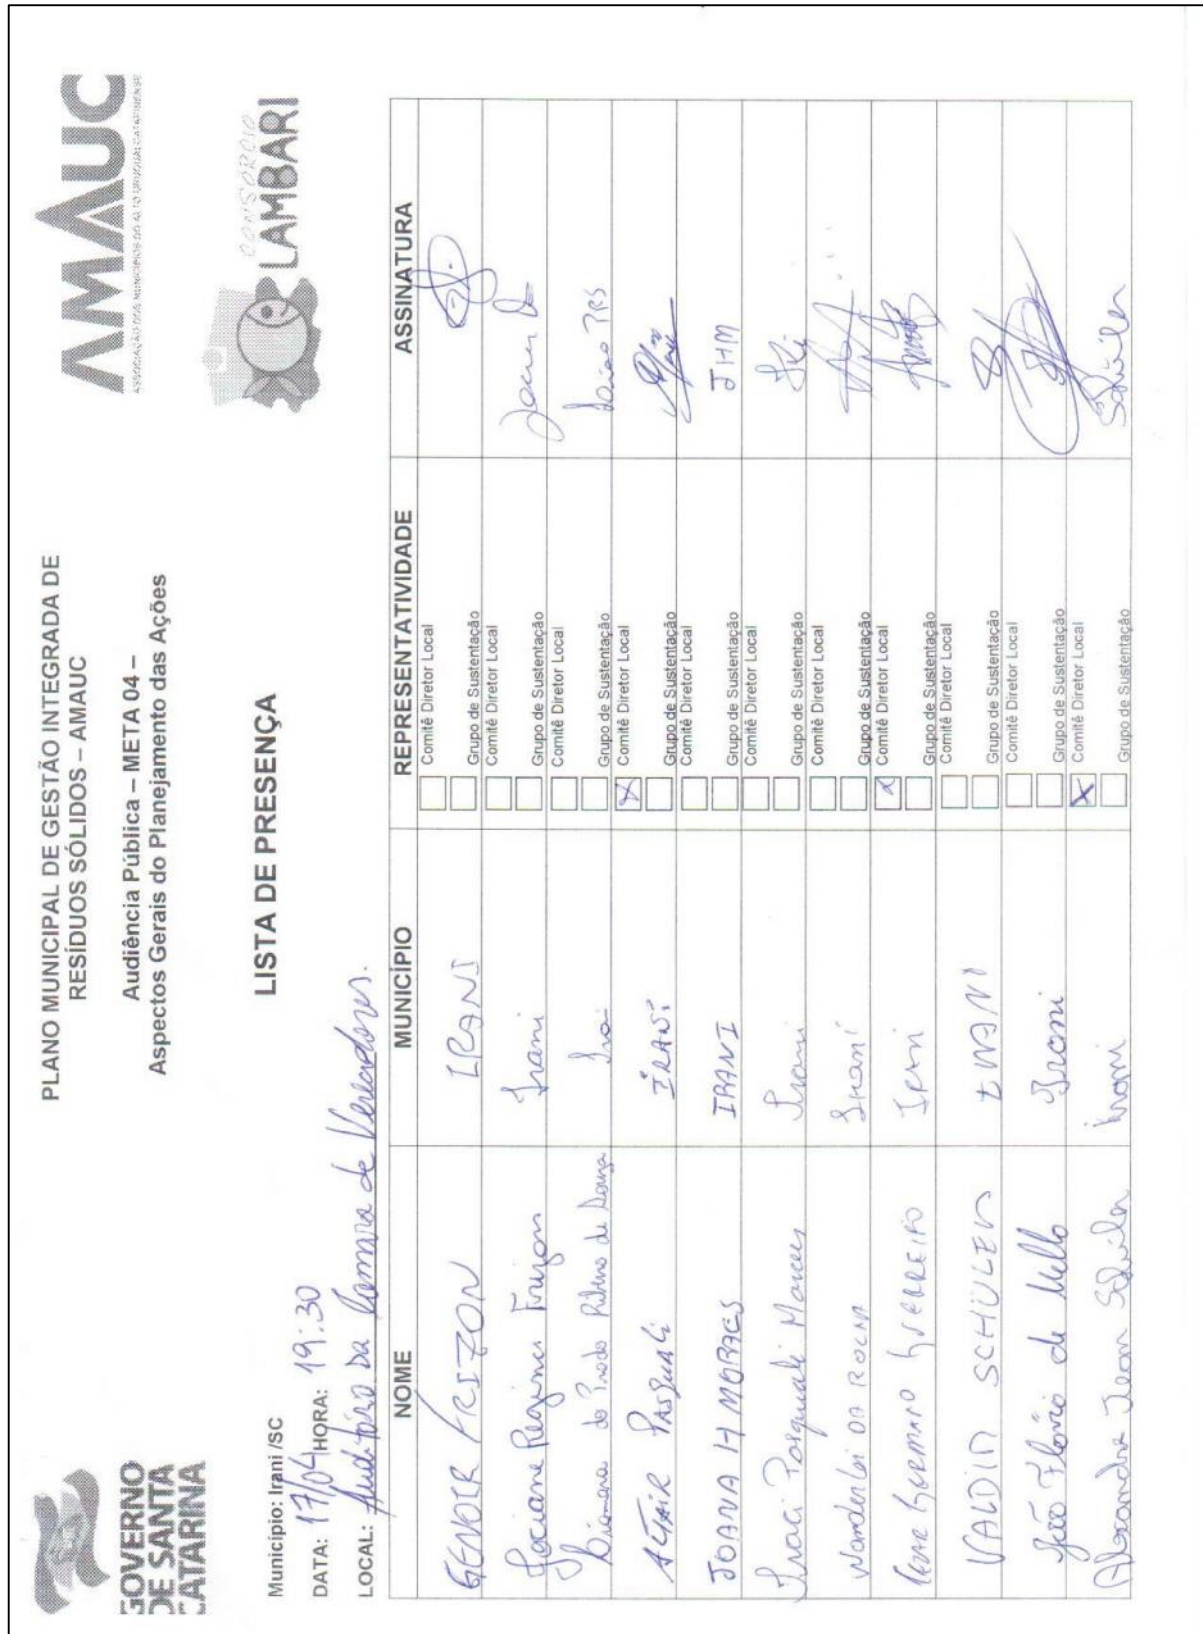 GOVERNO
DE SANTA
CATARINA
PLANO MUNICIPAL DE GESTÃO INTEGRADA DE
RESÍDUOS SÓLIDOS – AMAUC
Audiência Pública – META 04 –
Aspectos Gerais do Planejamento das Ações
AMAUC
ASSOCIAÇÃO DOS MUNICÍPIOS DO ALTO URUGUAI CATARINENSE
CONSÓRCIO
LAMBARI
LISTA DE PRESENÇA
Município: Irani /SC
DATA: 17/04 HORA: 19:30
LOCAL: Auditório da Camara de Vereadores.
NOME MUNICÍPIO REPRESENTATIVIDADE ASSINATURA
GENOIR FRIZON IRANI
Comitê Diretor Local
Grupo de Sustentação
Jociane Regina Frizon Irani
Comitê Diretor Local
Grupo de Sustentação
do Prado Ribeiro de Souza
Comitê Diretor Local
Grupo de Sustentação
ALTAIR PASQUALI IRANI
X Comitê Diretor Local
Grupo de Sustentação
JOANA H MORAES IRANI JHM
Comitê Diretor Local
Grupo de Sustentação
Iraci Pasquali Moraes Irani
Comitê Diretor Local
Grupo de Sustentação
Vanderlei DA ROCHA Irani
Comitê Diretor Local
Grupo de Sustentação
GERMANO GUERREIRO Irani
X Comitê Diretor Local
Grupo de Sustentação
VALDIR SCHÜLER IRANI
Comitê Diretor Local
Grupo de Sustentação
João Flávio de Mello Irani
Comitê Diretor Local
Grupo de Sustentação
Alexandre Jean Schüler Irani Schüler
X Comitê Diretor Local
Grupo de Sustentação